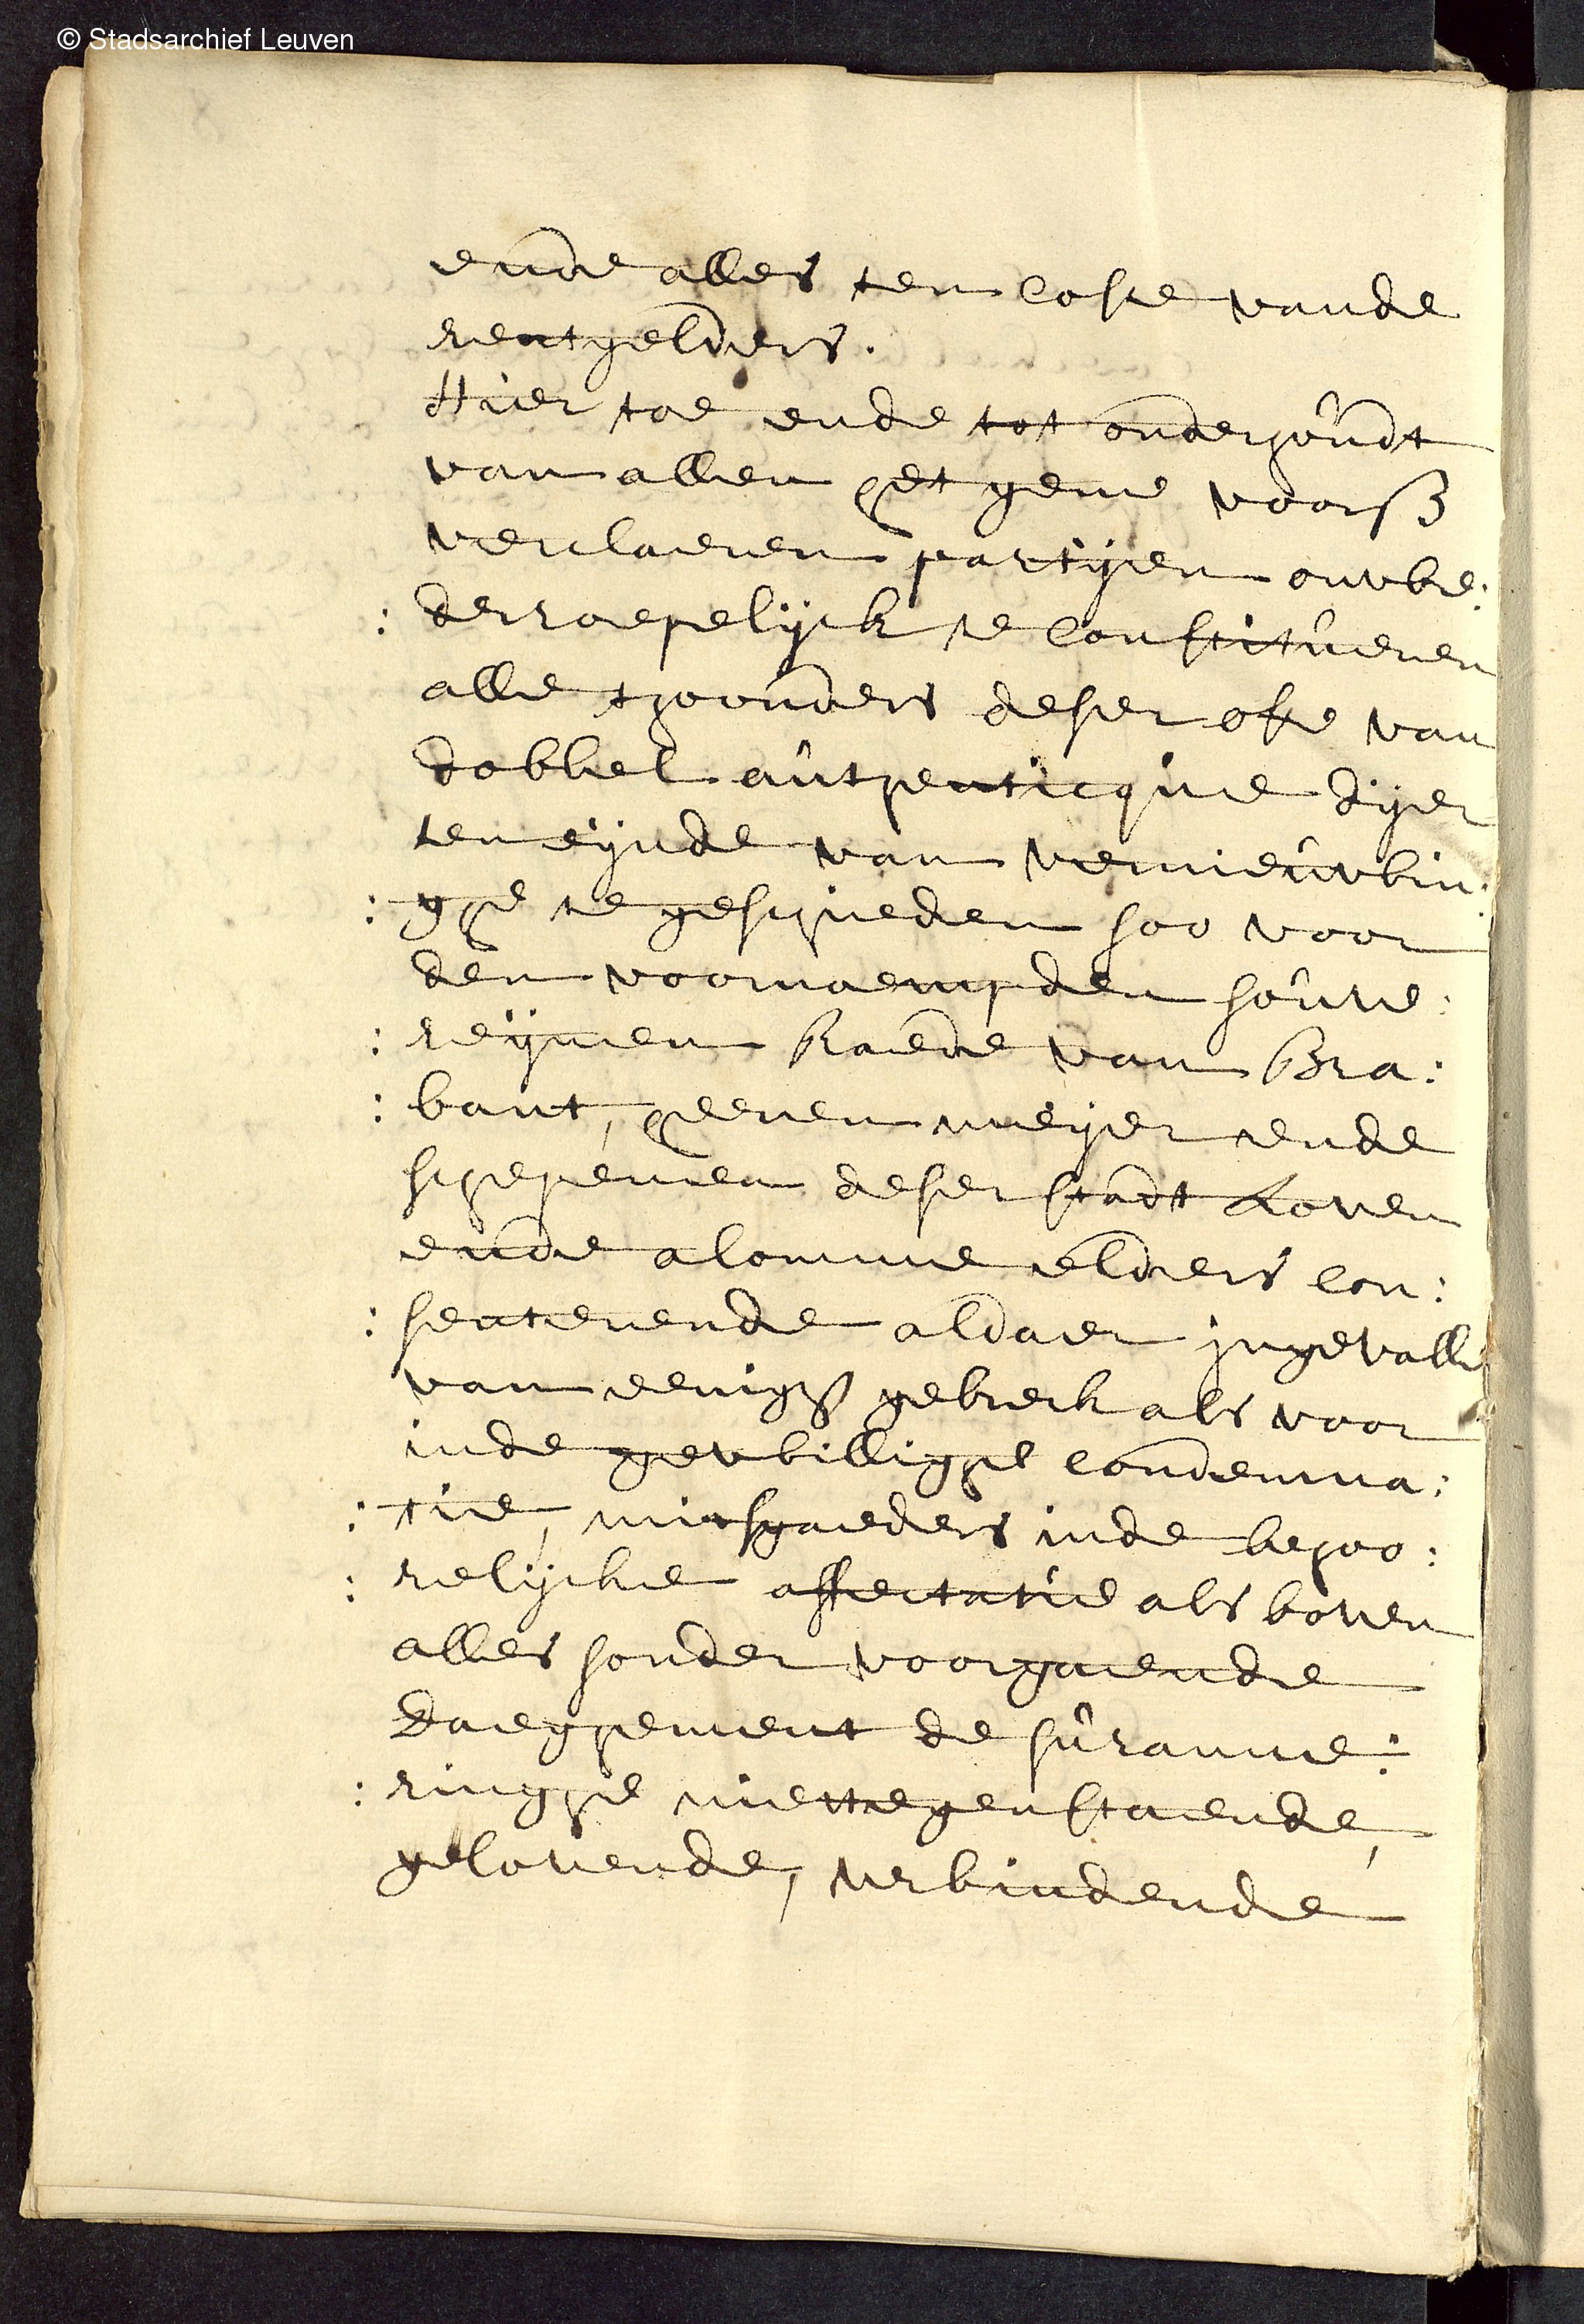 © Stadsarchief Leuven
ende alles ten coste vande
rentgelders.
Hier toe ende tot onderhoudt
van allen het gene voors
verclaeren partijen onwe:
: derroepelijck te constitueren
alle thoonders deser ofte van
dobbel authenticque dijer
ten eijnde van vernieuwin:
: ghe te geschieden soo voor
den voornaempden souve:
: reijnen Raede van Bra:
: bant, heeren meijer ende
schepenen deser stadt Loven
ende alomme elders con:
: senterende aldaer ingevalle
van eenigh gebreck als voor
inde gewillighe condemna:
: tie, mitsgaeders inde behoo:
: relijcke affectatie als boven
alles sonder voorgaende
daeghement de suranne:
: ringhe niettegenstaende,
gelovende, verbindende